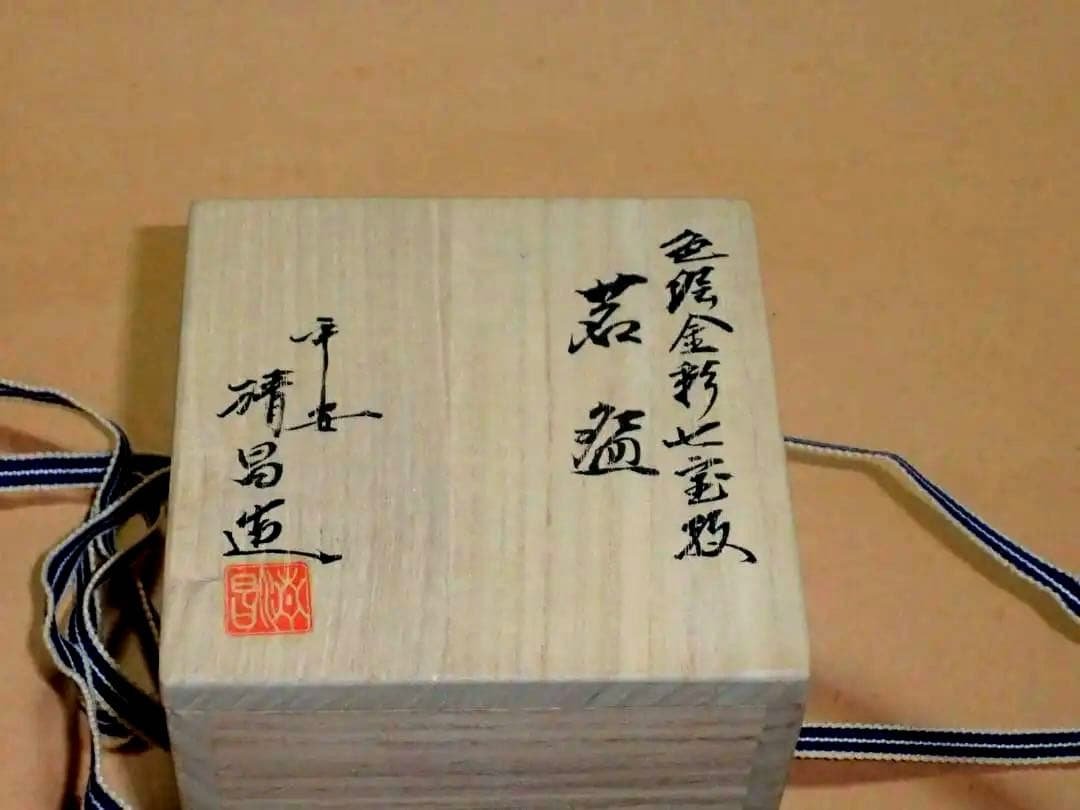 色絵金彩七宝敷
茗盌
平安
靖昌造